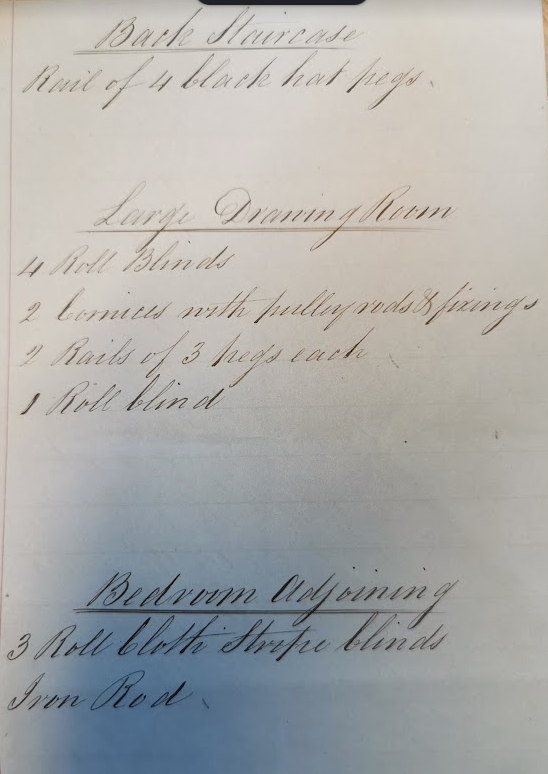 Back Staircase
Rail of 4 black hat pegs.
Large Drawing Room
4 Roll Blinds
2 Cornices with pulley rods & fixings
2 Rails of 3 pegs each
1 Roll blind
Bedroom Adjoining
3 Roll Cloth Stripe blinds
Iron Rod